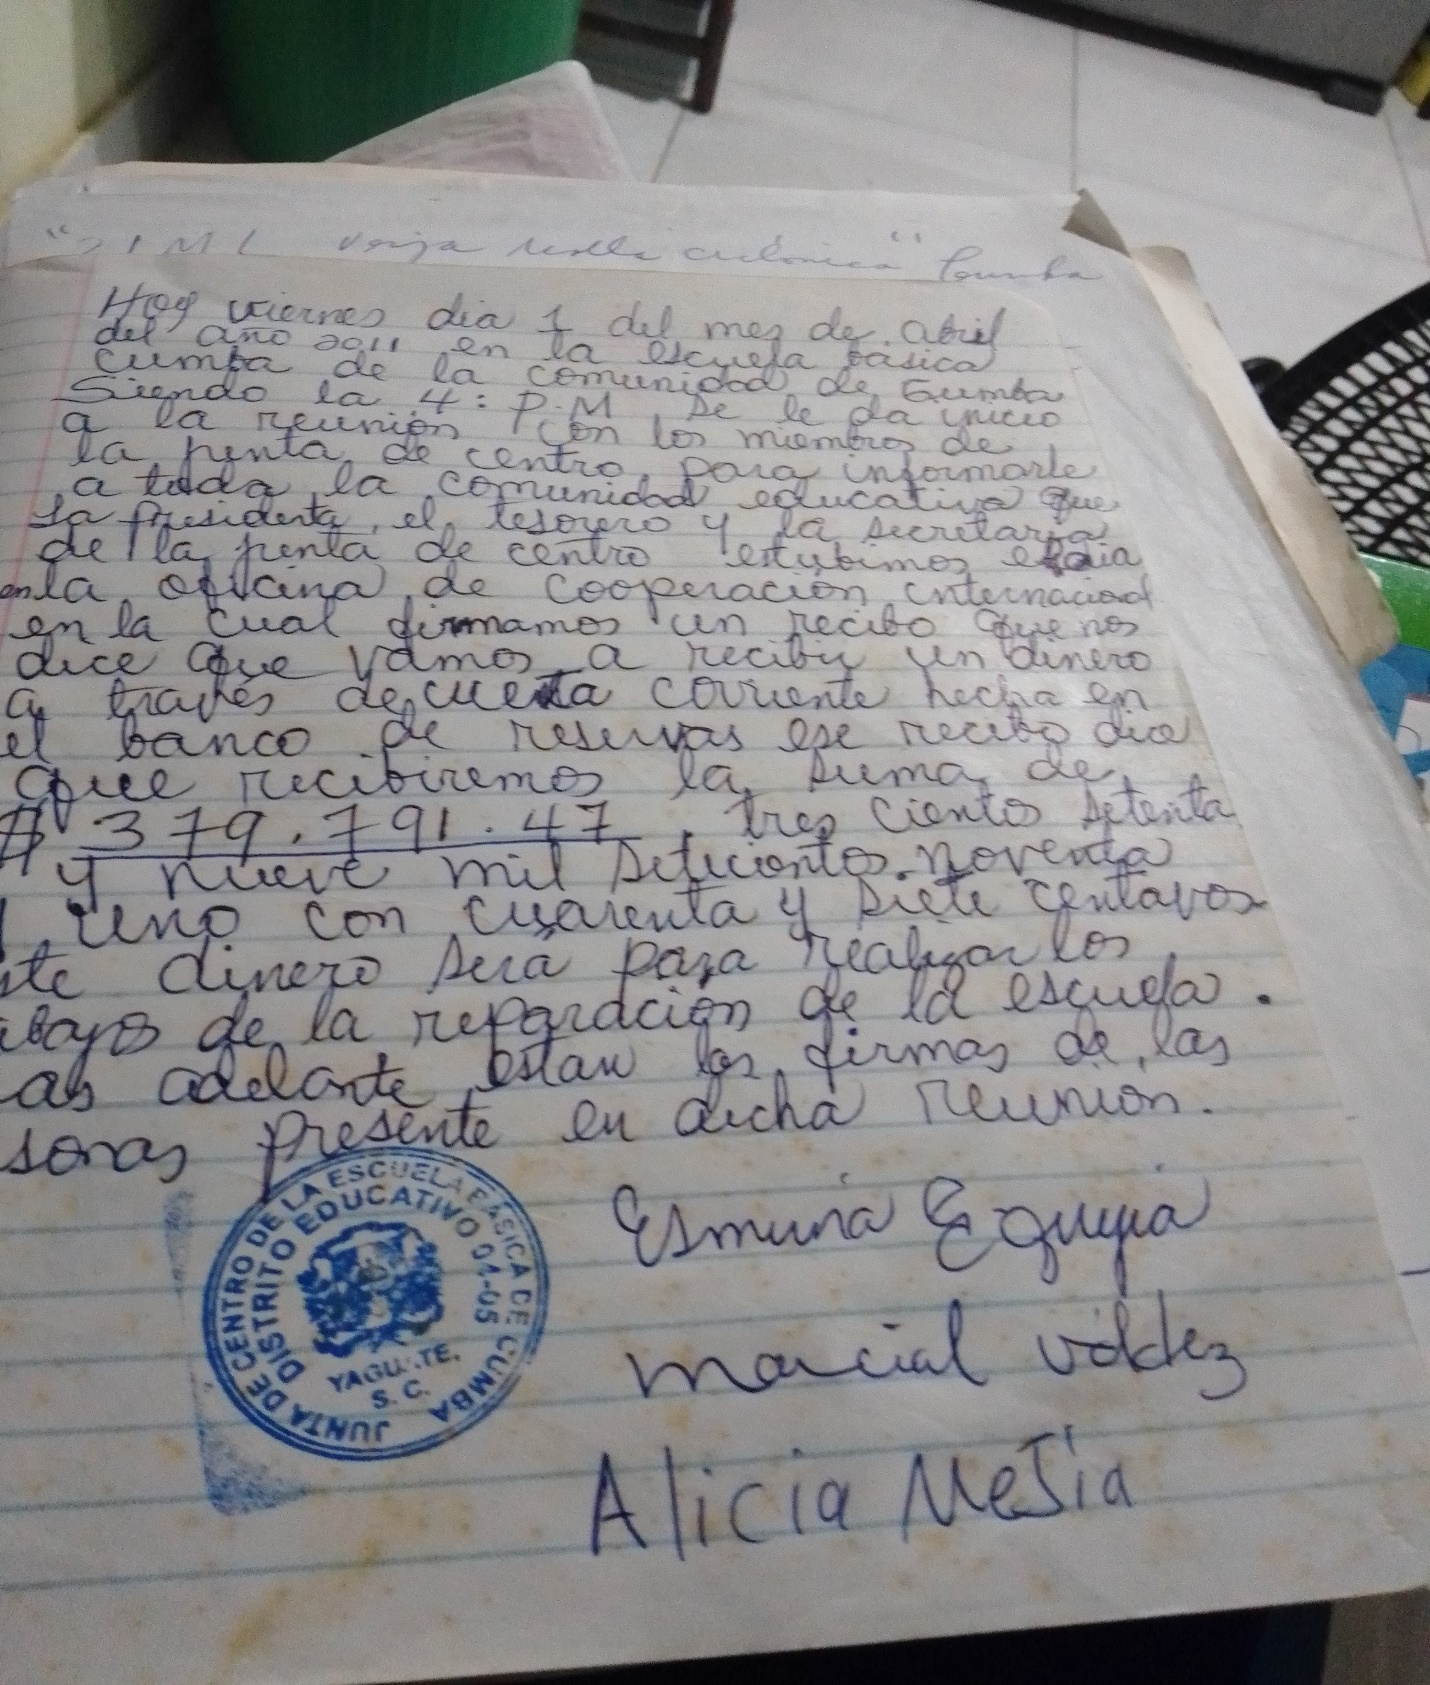 verja malla ciclónica" Cumba
Hoy viernes dia 1 del mes de abril
del año 2011 en la escuela básica
cumba de la comunidad de Cumba
Siendo la 4: P.M se le da inicio
a la reunion con los miembros de
la junta de centro para informarle
a toda la comunidad educativa que
La Presidenta, el tesorero y la secretaria
de la junta de centro estubimos ese dia
en la oficina de cooperación internacional
en la cual firmamos un recibo que nos
dice que vamos a recibir un dinero
a través de cuenta corriente hecha en
el banco de reservas ese recibo dice
que recibiremos la suma de
$ 379.791.47, tres ciento setenta
y nueve mil seteciontos noventa
uno con cuarenta y siete centavos
ste dinero será para realizar los
abajos de la reparación de la escuela.
as adelante estan las firmas de las
sonas presente en dicha reunion.
JUNTA DE CENTRO DE LA ESCUELA BASICA DE CUMBA
DISTRITO EDUCATIVO 04-05
YAGUATE,
S. C.
Esmuna
Marcial Valdez
Alicia MeJía